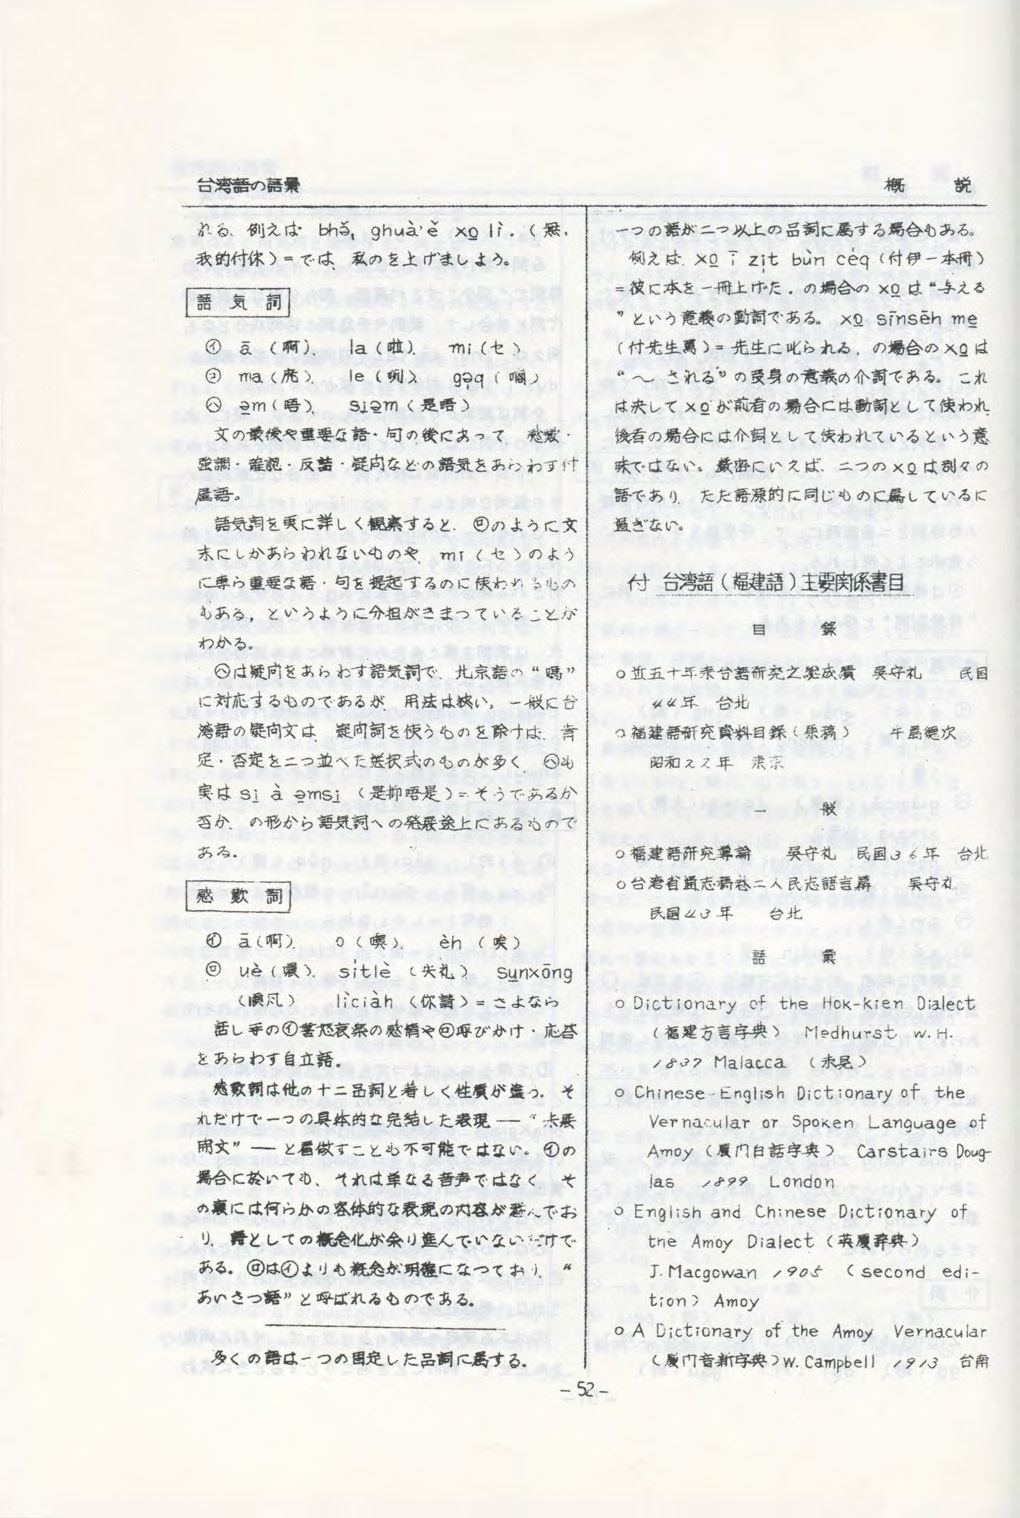 台湾語の語彙
概 説
れる、例えば bhǒ, ghuà'ě xo̲ lì.(無,
我的付休)=では、私のを上げましよう。
語気詞
㋑ ā(啊), la(啦), mi(セ)
㋺ ma(麽), le(咧), gəq(嗝)
㋩ əm(唔), siəm(是唔)
文の最後や重要な語・句の後にあって、感歎・
強調・確認・反詰・疑问などの語気をあらわす付
属語。
語気詞を更に詳しく観察すると、㋺のように文
末にしかあらわれないものや、mi(セ)のよう
に専ら重要な語・句を提起するのに使われるもの
もある,というように分担がきまっていることが
わかる。
㋩は疑问をあらわす語気詞で、北京語の“嗎”
に対応するものであるが、用法は狭い。一般に台
湾語の疑问文は、疑问詞を使うものを除けば、肯
定・否定を二つ並べた撰択式のものが多く、㋩も
実は si à əmsi(是抑唔是)=そうであるか
否か、の形から語気詞への発展途上にあるもので
ある。
感歎詞
㋑ ā(啊)、 o(噢)、 èh(唉)
㋺ uè(喂)、sitlè(失礼) Su̲nxōng
(順風) lìciàh(你請)=さよなら
話し手の㋑喜怒哀楽の感情や㋺呼びかけ・応答
をあらわす自立語。
感歎詞は他の十二品詞と著しく性質が違う。そ
れだけで一つの具体的な完結した表現——“未展
開文”——と看做すことも不可能ではない。㋑の
場合に於いても、それは単なる音声ではなく、そ
の裏には何らかの客体的な表現の内容が潜んでお
り、語としての概念化が余り進んでいないだけで
ある。㋺は㋑よりも概念が明確になつており、“
あいさつ語”と呼ばれるものである。
多くの語は一つの固定した品詞に属する。
一つの語が二つ以上の品詞に属する場合もある。
例えば、xo̲ ī zi̲t bùn céq(付伊一本冊)
=彼に本を一冊上げた,の場合の xo̲ は“与える
”という意義の動詞である。xo̲ sīnsēh me̲
(付先生罵)=先生に叱られる,の場合の xo̲ は
“〜、される”の受身の意義の介詞である。これ
は決して xo̲ が前者の場合には動詞として使われ、
後者の場合には介詞として使われているという意
味ではない。厳密にいえば、二つの xo̲ は別々の
語であり、ただ語源的に同じものに属しているに
過ぎない。
付 台湾語(福建語)主要関係書目
目 録
○近五十年来台語研究之総成績 吳守礼 民国
44年 台北
○福建語研究資料目録(原稿) 牛島 次
昭和22年 東京
一 般
○福建語研究導論 吳守礼 民国36年 台北
○台湾省通志稿巻二人民志語言篇 吳守礼
民国43年 台北
語 彙
○ Dictionary of the Hok-kien Dialect
(福建方言字典) Medhurst W.H.
1837 Malacca (未見)
○ Chinese-English Dictionary of the
Vernacular or Spoken Language of
Amoy(厦门白話字典) Carstairs Doug-
las 1899 London
○ English and Chinese Dictionary of
the Amoy Dialect(英厦辞典)
J. Macgowan 1905 (second edi-
tion) Amoy
○ A Dictionary of the Amoy Vernacular
(厦门音新字典)W. Campbell 1913 台南
-52-